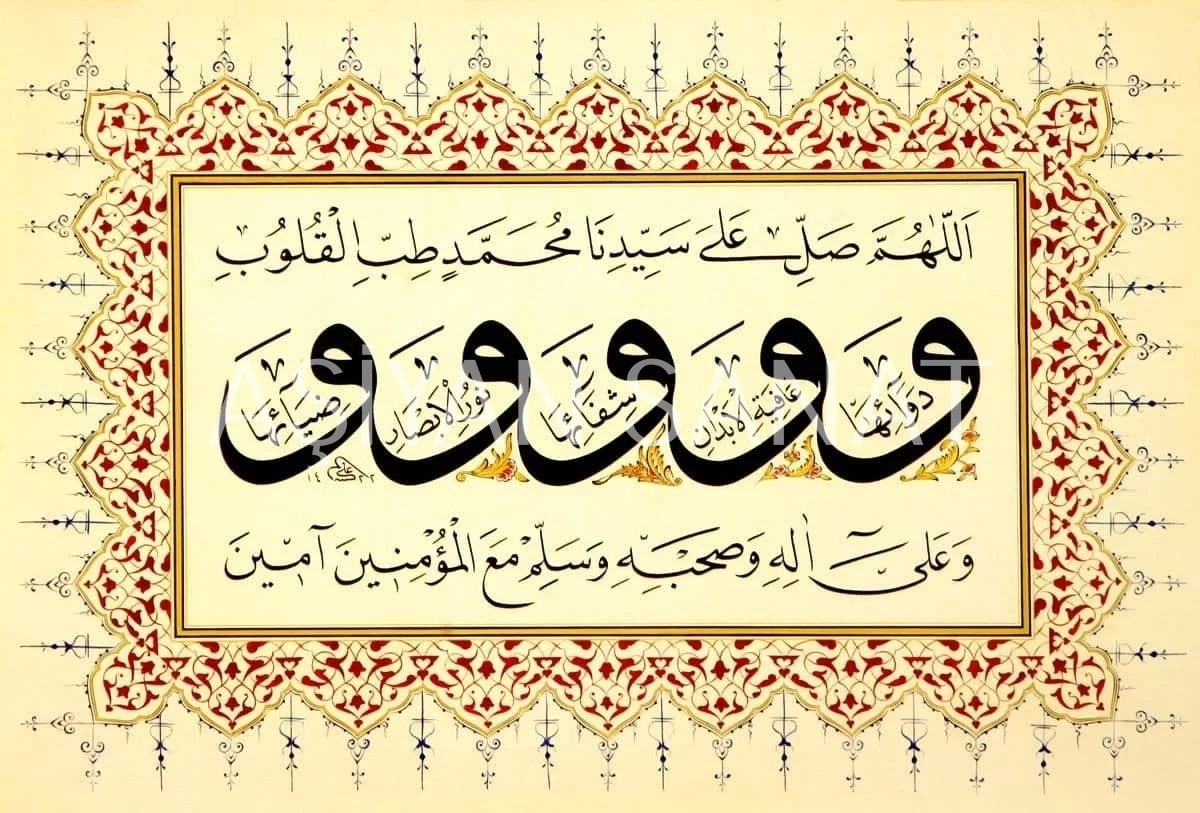 اَللّٰهُمَّ صَلِّ عَلَى سَيِّدِنَا مُحَمَّدٍ طِبِّ الْقُلُوبِ
و دَوَائِهَا و عَافِيَةِ الْاَبْدَانِ و شِفَائِهَا و نُورِ الْاَبْصَارِ و ضِيَائِهَا
وَعَلَى اٰلِهِ وَصَحْبِهِ وَسَلِّمْ مَعَ الْمُؤْمِنِينَ آمِينَ
AŞİYAN SANAT